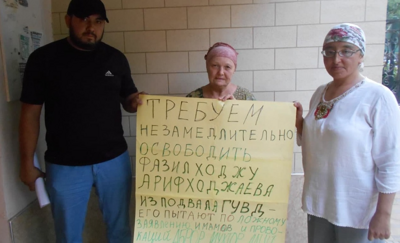 ТРЕБУЕМ
НЕЗАМЕДЛИТЕЛЬНО
ОСВОБОДИТЬ
ФАЗИЛХОДЖУ
АРИФХОДЖАЕВА
ИЗ ПОДВАЛА ГУВД-
ЕГО ПЫТАЮТ ПО ЛОЖНОМУ
ЗАЯВЛЕНИЮ ИМАМОВ И ПРОВО-
КАЦИИ